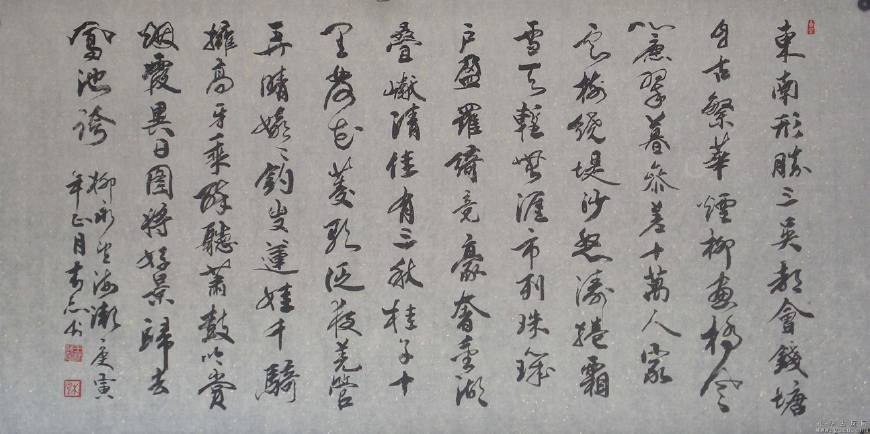 東南形勝三吳都會錢塘
自古繁華煙柳畫橋風
簾翠暮參差十萬人家
雲樹繞堤沙怒濤捲霜
雪天塹無涯市列珠璣
戶盈羅綺競豪奢重湖
疊巘清佳有三秋桂子十
里荷花菱歌泛夜羌管
弄晴嬉〻釣叟蓮娃千騎
擁高牙乘醉聽蕭鼓吟賞
烟霞異日圖將好景歸去
鳳池誇
柳永望海潮庚寅
年正月志书